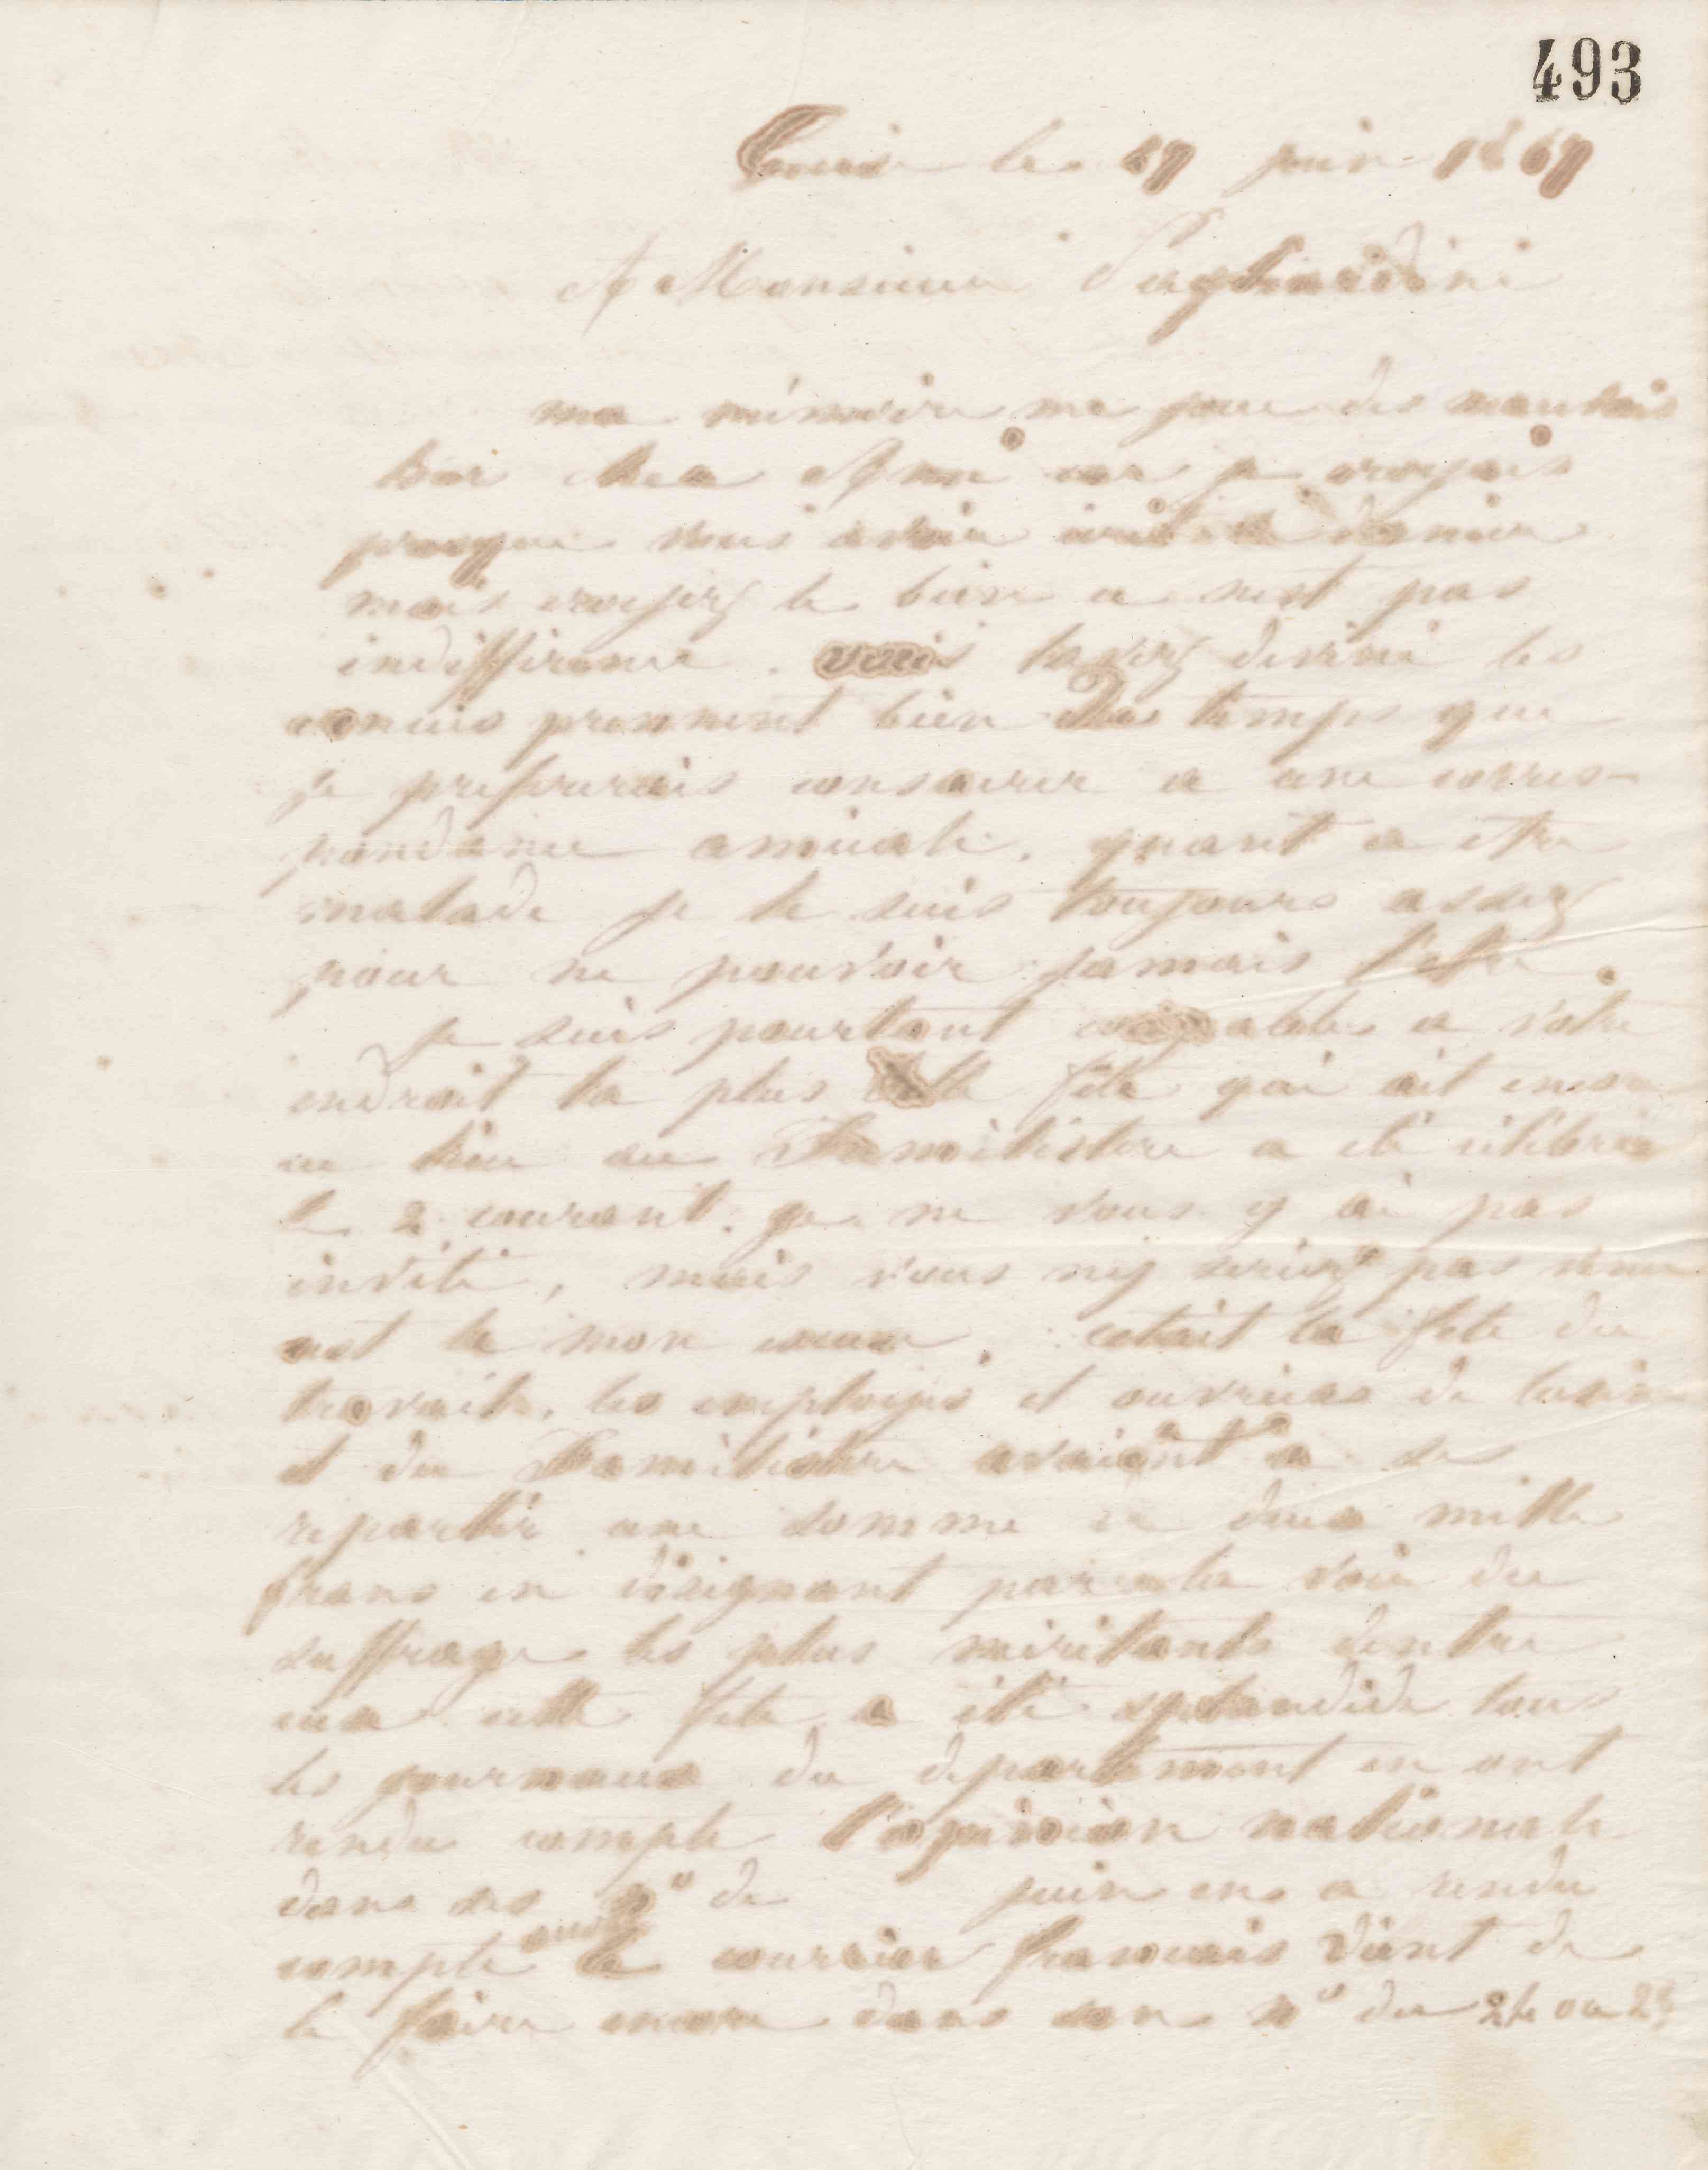 493
Guise le 27 juin 1867
A Monsieur Pagliardini
ma mémoire me joue des mauvais
tour cher Ami car je croyais
presque vous avoir écrit le dernier
mais croyez le bien ce nest pas
indifference. vous lavez deviné les
ennuis prennent bien du temps que
je prefererais consacrer a une corres-
pondance amicale. quant a etre
malade je le suis toujours assez
pour ne pouvoir jamais l'etre
je suis pourtant coupable a votre
endroit la plus belle fête qui ait encore
eu lieu au Familistere a eté célébrée
le 2 courant. je ne vous y ai pas
invité, mais vous ny seriez pas venu
cest la mon excuse. cetait la fete du
travail, les employés et ouvriers de lusine
et du Familistere avaient a se
repartir une somme de deux mille
francs en désignant par la voie du
suffrage les plus méritants dentre
eux cette fete a été splendide tous
les journaux du departement en ont
rendu compte l'opinion nationale
dans ses nº de juin en a rendu
compte aussi
le courrier francais vient de
le faire encore dans son nº du 24 ou 25